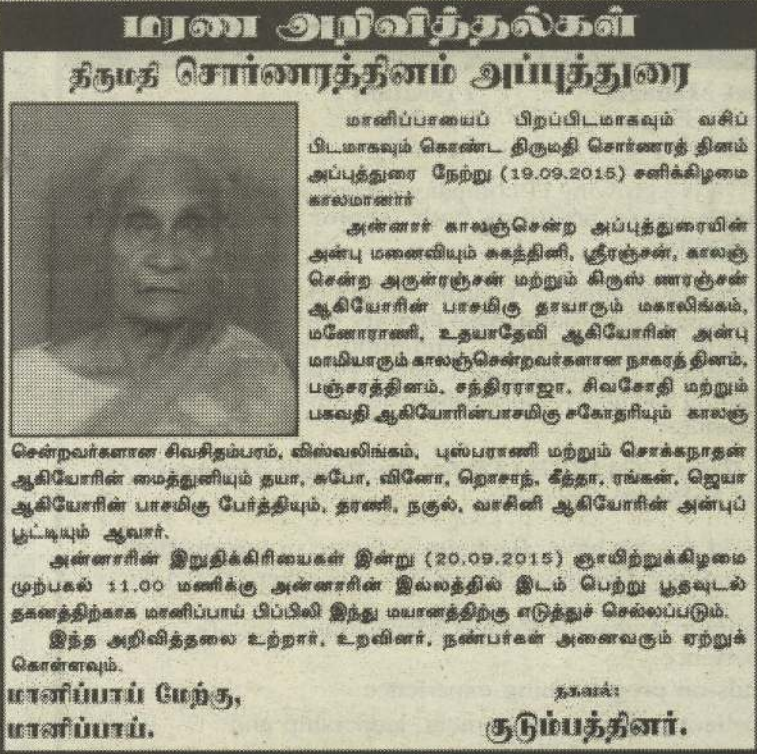 மரண அறிவித்தல்கள்
திருமதி சொர்ணரத்தினம் அப்புத்துரை
மானிப்பாயைப் பிறப்பிடமாகவும் வசிப்
பிடமாகவும் கொண்ட திருமதி சொர்ணரத் தினம்
அப்புத்துரை நேற்று (19.09.2015) சனிக்கிழமை
காலமானார்
அன்னார் காலஞ்சென்ற அப்புத்துரையின்
அன்பு மனைவியும் சுகத்தினி, ஸ்ரீரஞ்சன், காலஞ்
சென்ற அருள்ரஞ்சன் மற்றும் கிருஸ் ணரஞ்சன்
ஆகியோரின் பாசமிகு தாயாரும் மகாலிங்கம்,
மனோராணி, உதயாதேவி ஆகியோரின் அன்பு
மாமியாரும் காலஞ்சென்றவர்களான நாகரத் தினம்,
பஞ்சரத்தினம், சந்திரராஜா, சிவசோதி மற்றும்
பகவதி ஆகியோரின்பாசமிகு சகோதரியும் காலஞ்
சென்றவர்களான சிவசிதம்பரம், விஸ்வலிங்கம், புஸ்பராணி மற்றும் சொக்கநாதன்
ஆகியோரின் மைத்துனியும் தயா, சுபோ, வினோ, றொசாந், கீத்தா, ரங்கன், ஜெயா
ஆகியோரின் பாசமிகு பேர்த்தியும், தரணி, நகுல், வாசினி ஆகியோரின் அன்புப்
பூட்டியும் ஆவார்.
அன்னாரின் இறுதிக்கிரியைகள் இன்று (20.09.2015) ஞாயிற்றுக்கிழமை
முற்பகல் 11.00 மணிக்கு அன்னாரின் இல்லத்தில் இடம் பெற்று பூதவுடல்
தகனத்திற்காக மானிப்பாய் பிப்பிலி இந்து மயானத்திற்கு எடுத்துச் செல்லப்படும்.
இந்த அறிவித்தலை உற்றார், உறவினர், நண்பர்கள் அனைவரும் ஏற்றுக்
கொள்ளவும்.
மானிப்பாய் மேற்கு,
மானிப்பாய்.
தகவல்:
குடும்பத்தினர்.